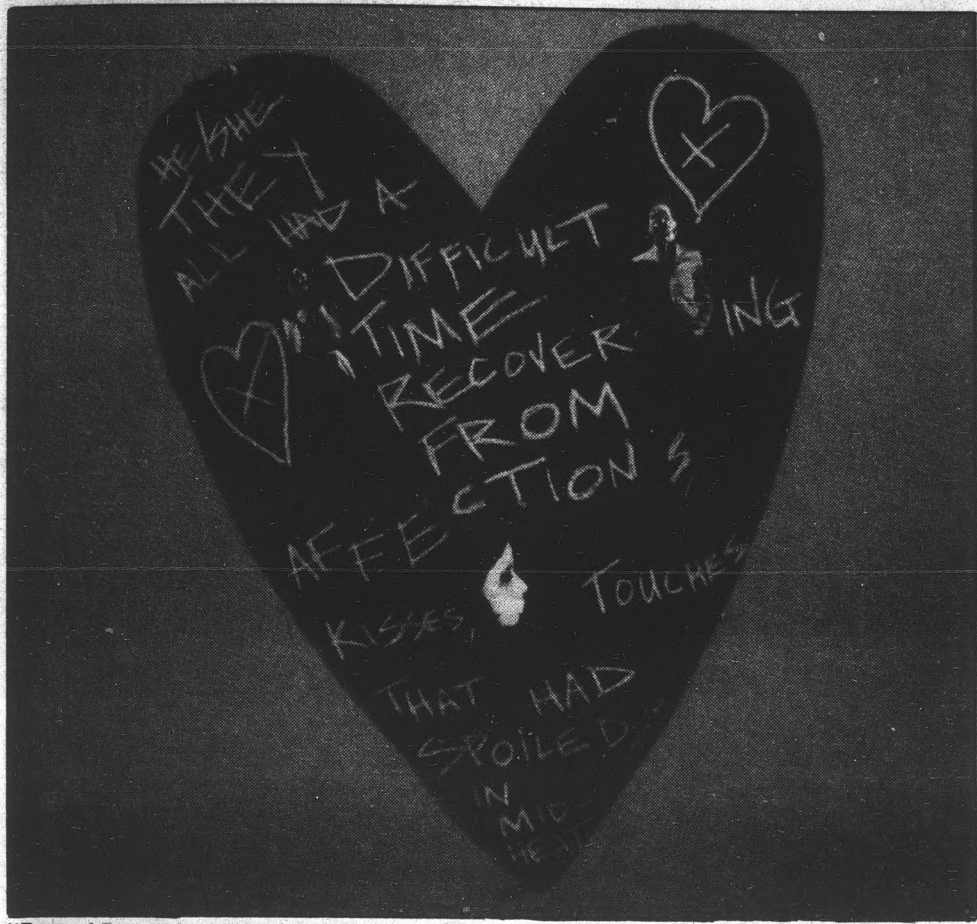 HE/SHE
THEY
ALL HAD A
DIFFICULT
TIME
RECOVERING
FROM
AFFECTIONS,
KISSES, TOUCHES
THAT HAD
SPOILED
IN
MID
HEAT